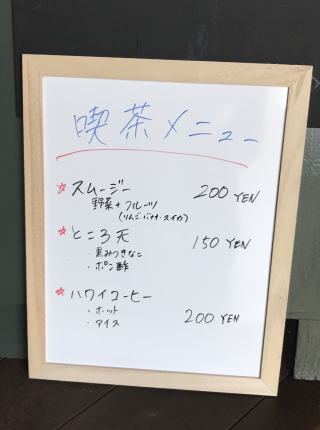 喫茶メニュー
☆スムージー 200 YEN
野菜+フルーツ
(りんご バナナ スイカ)
☆ところ天 150 YEN
・黒みつきなこ
・ポン酢
☆ハワイコーヒー
・ホット
・アイス 200 YEN